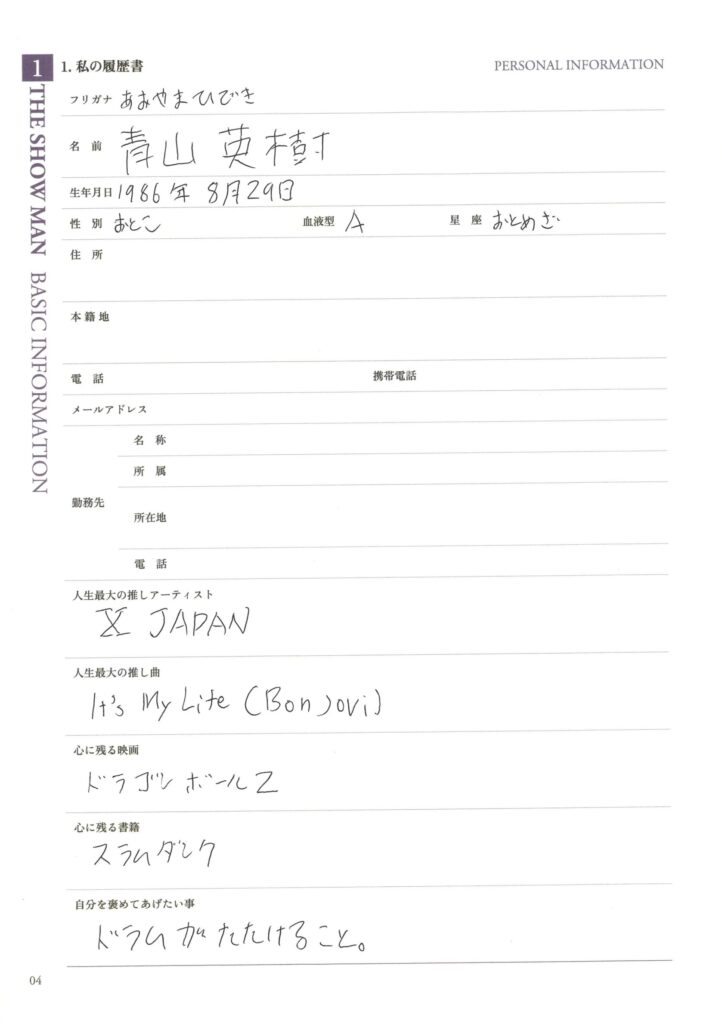 1
THE SHOW MAN BASIC INFORMATION
1. 私の履歴書
PERSONAL INFORMATION
フリガナ あおやまひでき
名 前 青山 英樹
生年月日 1986年 8月29日
性 別 おとこ 血液型 A 星 座 おとめざ
住 所
本 籍 地
電 話 携帯電話
メールアドレス
勤務先
名 称
所 属
所在地
電 話
人生最大の推しアーティスト
X JAPAN
人生最大の推し曲
It's My Life (Bon Jovi)
心に残る映画
ドラゴンボールZ
心に残る書籍
スラムダンク
自分を褒めてあげたい事
ドラムがたたけること。
04